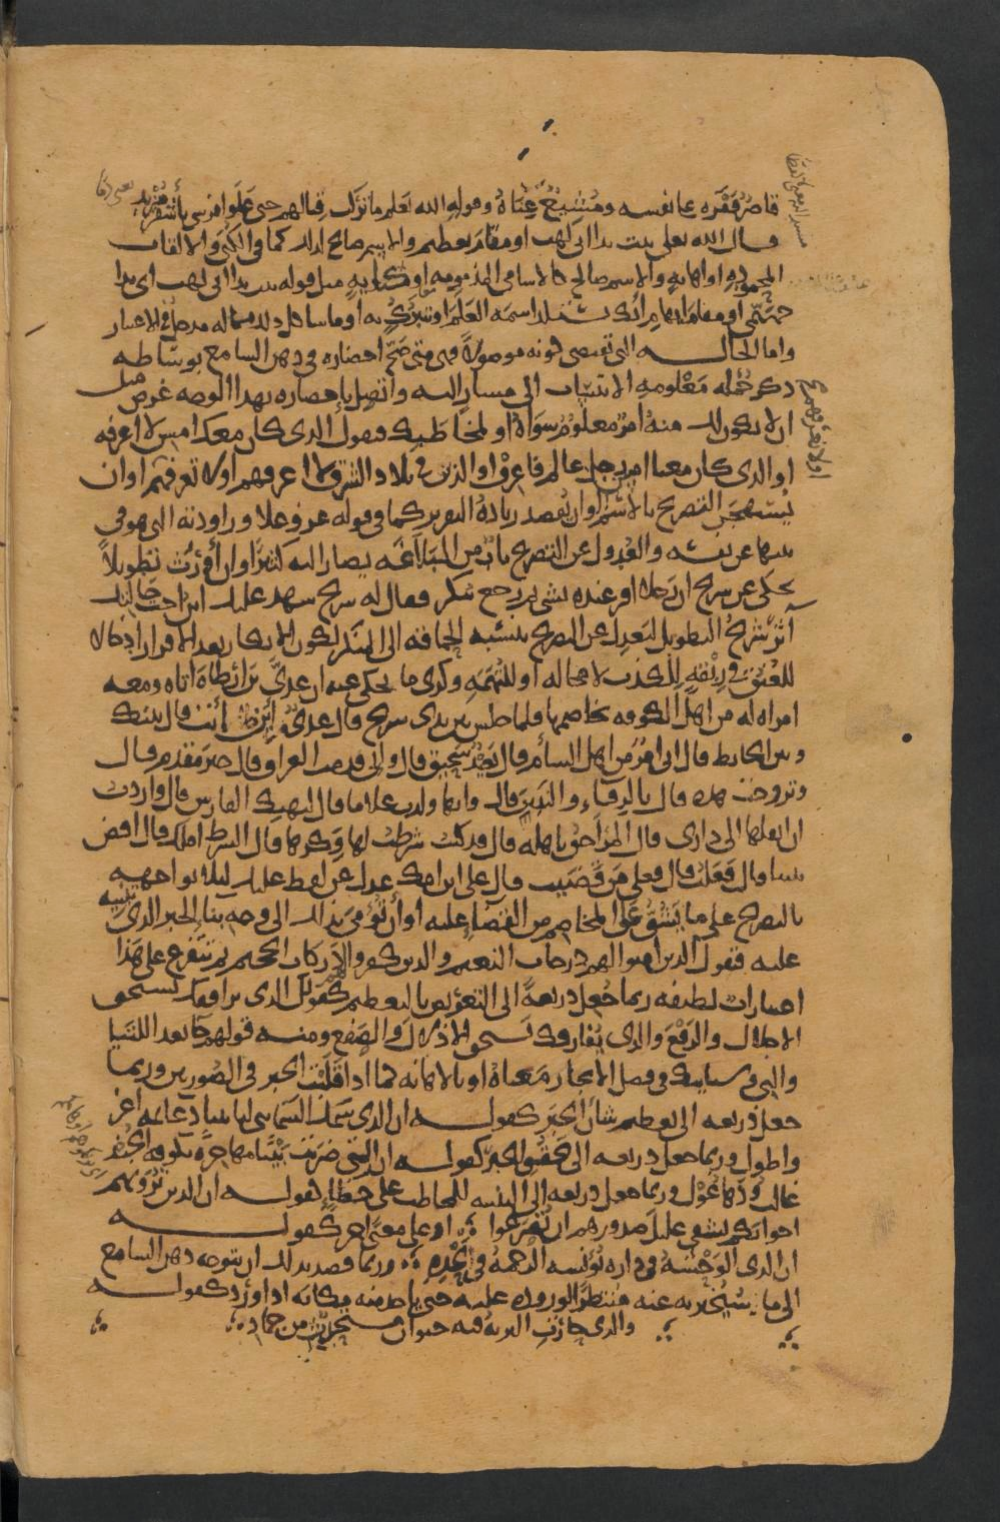 قاصر فقره على نفسه ومشيع غناه وقوله الله يعلم ما تركت قتالهم حتى علوا فرسي بأشقر مزبد
قال الله تعالى تبت يدا ابي لهب او مقام تعظيم والاسم صالح لذلك كما في الكنى والالقاب
المحمودة او اهانة والاسم صالح كالاسامي المذمومة او كناية مثل قوله تبت يدا ابي لهب اي يدا
جهنمي او مقام ايهام انك تستلذ اسمه العلم او تتبرك به او ما شاكل ذلك مما له مدخل في الاعتبار
واما الحالة التي تقتضي كونه موصولا فهي متى صح احضاره في ذهن السامع بوساطة
ذكر جملة معلومة الانتساب الى مشار اليه واتصل باحضاره بهذا الوجه غرض مثل
ان لا يكون لك منه امر معلوم سواه او لمخاطبك فتقول الذي كان معك امس لا اعرفه
او الذي كان معنا امس رجل عالم فاعرفه او الذين في بلاد الشرق لا اعرفهم او لا تعرفهم او ان
يستهجن التصريح بالاسم او ان يقصد زيادة التقرير كما في قوله عز وعلا وراودته التي هو في
بيتها عن نفسه والعدول عن التصريح باب من البلاغة يصار اليه كثيرا وان اورث تطويلا
يحكى عن شريح ان رجلا اقر عنده بشيء ثم رجع ينكر فقال له شريح شهد عليك ابن اخت خالتك
آثر شريح التطويل ليعدل عن التصريح بنسبة الحماقة الى المنكر لكون الانكار بعد الاقرار ادخالا
للعنق في ربقة الكذب لا محالة او للتهمة وكذى ما يحكى عنه ان عدي بن ارطاة اتاه ومعه
امراة له من اهل الكوفة يخاصمها فلما جلس بين يدي شريح قال عدي اين انت قال بينك
وبين الحائط قال اني امرؤ من اهل الشأم قال بعيد سحيق قال واني قدمت العراق قال خير مقدم قال
وتزوجت هذه قال بالرفاء والبنين قال وانها ولدت غلاما قال ليهنك الفارس قال واردت
ان انقلها الى داري قال المرء احق باهله قال قد كنت شرطت لها وكرها قال الشرط املك قال اقض
بيننا قال فعلت قال فعلى من قضيت قال على ابن امك عدل عن لفظ عليك لئلا يواجهه
بالتصريح على ما يشق على المخاصم من القضاء عليه او ان تومئ بذلك الى وجه بناء الخبر الذي تبنيه
عليه فتقول الذين آمنوا لهم درجات النعيم والذين كفروا لهم دركات الجحيم ثم يتفرع على هذا
اعتبارات لطيفة ربما جعل ذريعة الى التعريض بالتعظيم كقولك الذي يرافقك يستحق
الاجلال والرفع والذي يفارقك يستحق الاذلال والصفع ومنه قولهم جا بعد اللتيا
والتي وسيأتيك في فصل الايجاز معناه او بالاهانة كما اذا قلبت الخبر في الصورتين وربما
جعل ذريعة الى تعظيم شأن الخبر كقوله ان الذي سمك السماء بنى لنا بيتا دعائمه اعز
واطول وربما جعل ذريعة الى تحقيق الخبر كقوله ان التي ضربت بيتا مهاجرة بكوفة الجند
غالت ودها غول وربما جعل ذريعة الى التنبيه للمخاطب على خطا كقوله ان الذين ترونهم
اخوانكم يشفي غليل صدورهم ان تصرعوا او على معنى آخر كقوله
ان الذي الوحشة في داره تؤنسه الرحمة في لحده وربما قصد بذلك ان يتوجه ذهن السامع
الى ما يستخبر به عنه منتظرا لوروده عليه حتى ياخذ منه مكانه اذا ورد كقوله
والذي حارت البرية فيه حيوان مستحدث من جماد